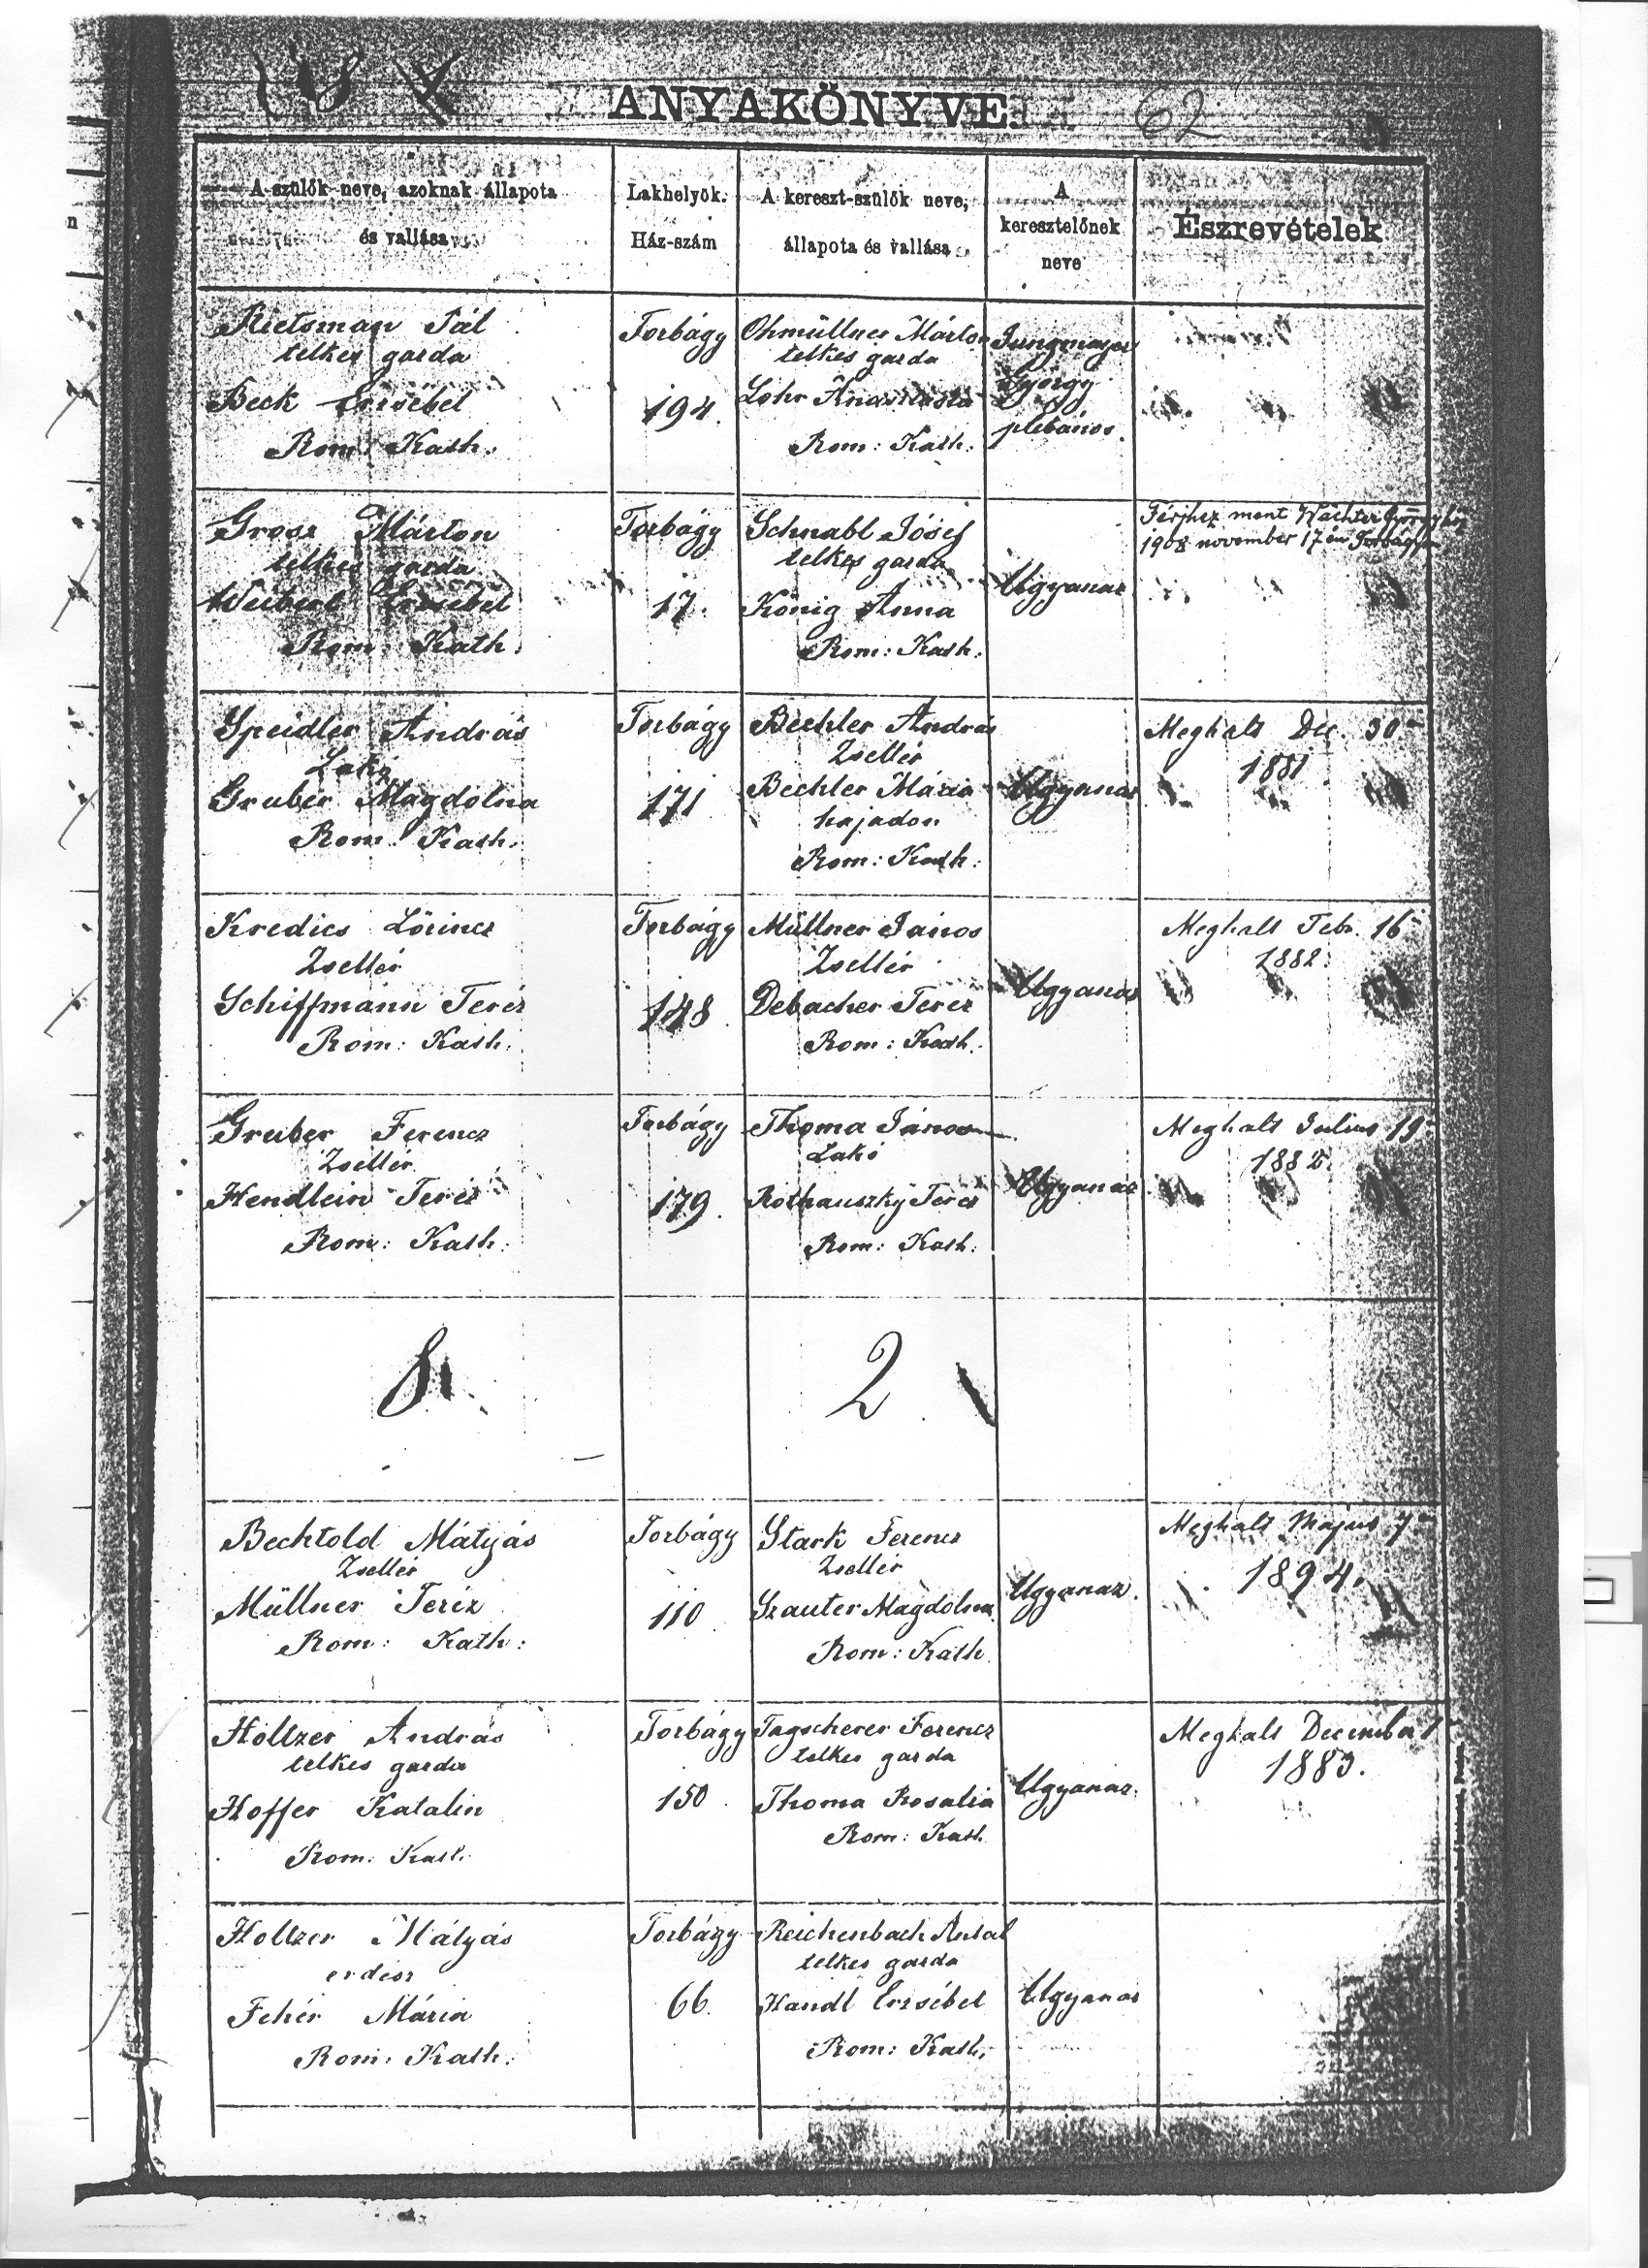 ANYAKÖNYVE.
62
A szülők neve, azoknak állapota
és vallása
Lakhelyök.
Ház-szám
A kereszt-szülők neve,
állapota és vallása
A
keresztelőnek
neve
Észrevételek
Rietsman Pál
telkes garda
Beck Erzsébet
Rom: Kath.
Torbágy
194.
Ohmüllner Márton
telkes garda
Lohr Anastasia
Rom: Kath.
Jungmayer
György
plébános.
Grosz Márton
telkes garda
Erzsébet
Rom: Kath.
Torbágy
17.
Schnabl Jósef
telkes garda
König Anna
Rom: Kath.
Ugyanaz
Férjhez ment Wachter Györgyhöz
1908 november 17én Torbágyon
Speidler András
Lakó
Gruber Magdolna
Rom: Kath.
Torbágy
171
Bechler András
Zsellér
Bechler Mária
hajadon
Rom: Kath:
Ugyanaz
Meghalt Dec. 30-
1881.
Kredics Lörincz
Zsellér
Schiffmann Teréz
Rom: Kath.
Torbágy
148.
Müllner János
Zsellér
Debacher Teréz
Rom: Kath.
Ugyanaz
Meghalt Febr. 16-
1882.
Gruber Ferencz
Zsellér
Hendlein Teréz
Rom: Kath:
Torbágy
179.
Thoma János
Lakó
Rothauszky Teréz
Rom: Kath:
Ugyanaz
Meghalt Julius 19-
1882.
2
Bechtold Mátyás
Zsellér
Müllner Teréz
Rom: Kath:
Torbágy
110
Stark Ferencz
Zsellér
Szauter Magdolna
Rom: Kath.
Ugyanaz.
Meghalt Május 7-
1894.
Holtzer András
telkes garda
Hoffer Katalin
Rom: Kath.
Torbágy
150.
Tagscherer Ferencz
telkes garda
Thoma Rosalia
Rom: Kath.
Ugyanaz.
Meghalt December 1-
1883.
Holtzer Mátyás
erdész
Fehér Mária
Rom: Kath.
Torbágy
66.
Reichenbach Antal
telkes garda
Handl Erzsébet
Rom: Kath.
Ugyanaz